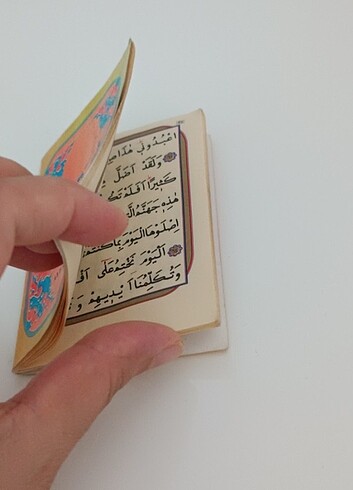 اعْبُدُونِي هٰذَا
وَلَقَدْ اَضَلَّ
كَثِيرًا اَفَلَمْ
هٰذِهِ جَهَنَّمُ
اِصْلَوْهَا الْيَوْمَ بِمَا كُنْتُمْ
اَلْيَوْمَ نَخْتِمُ عَلٰى
وَتُكَلِّمُنَا اَيْدِيهِمْ وَ